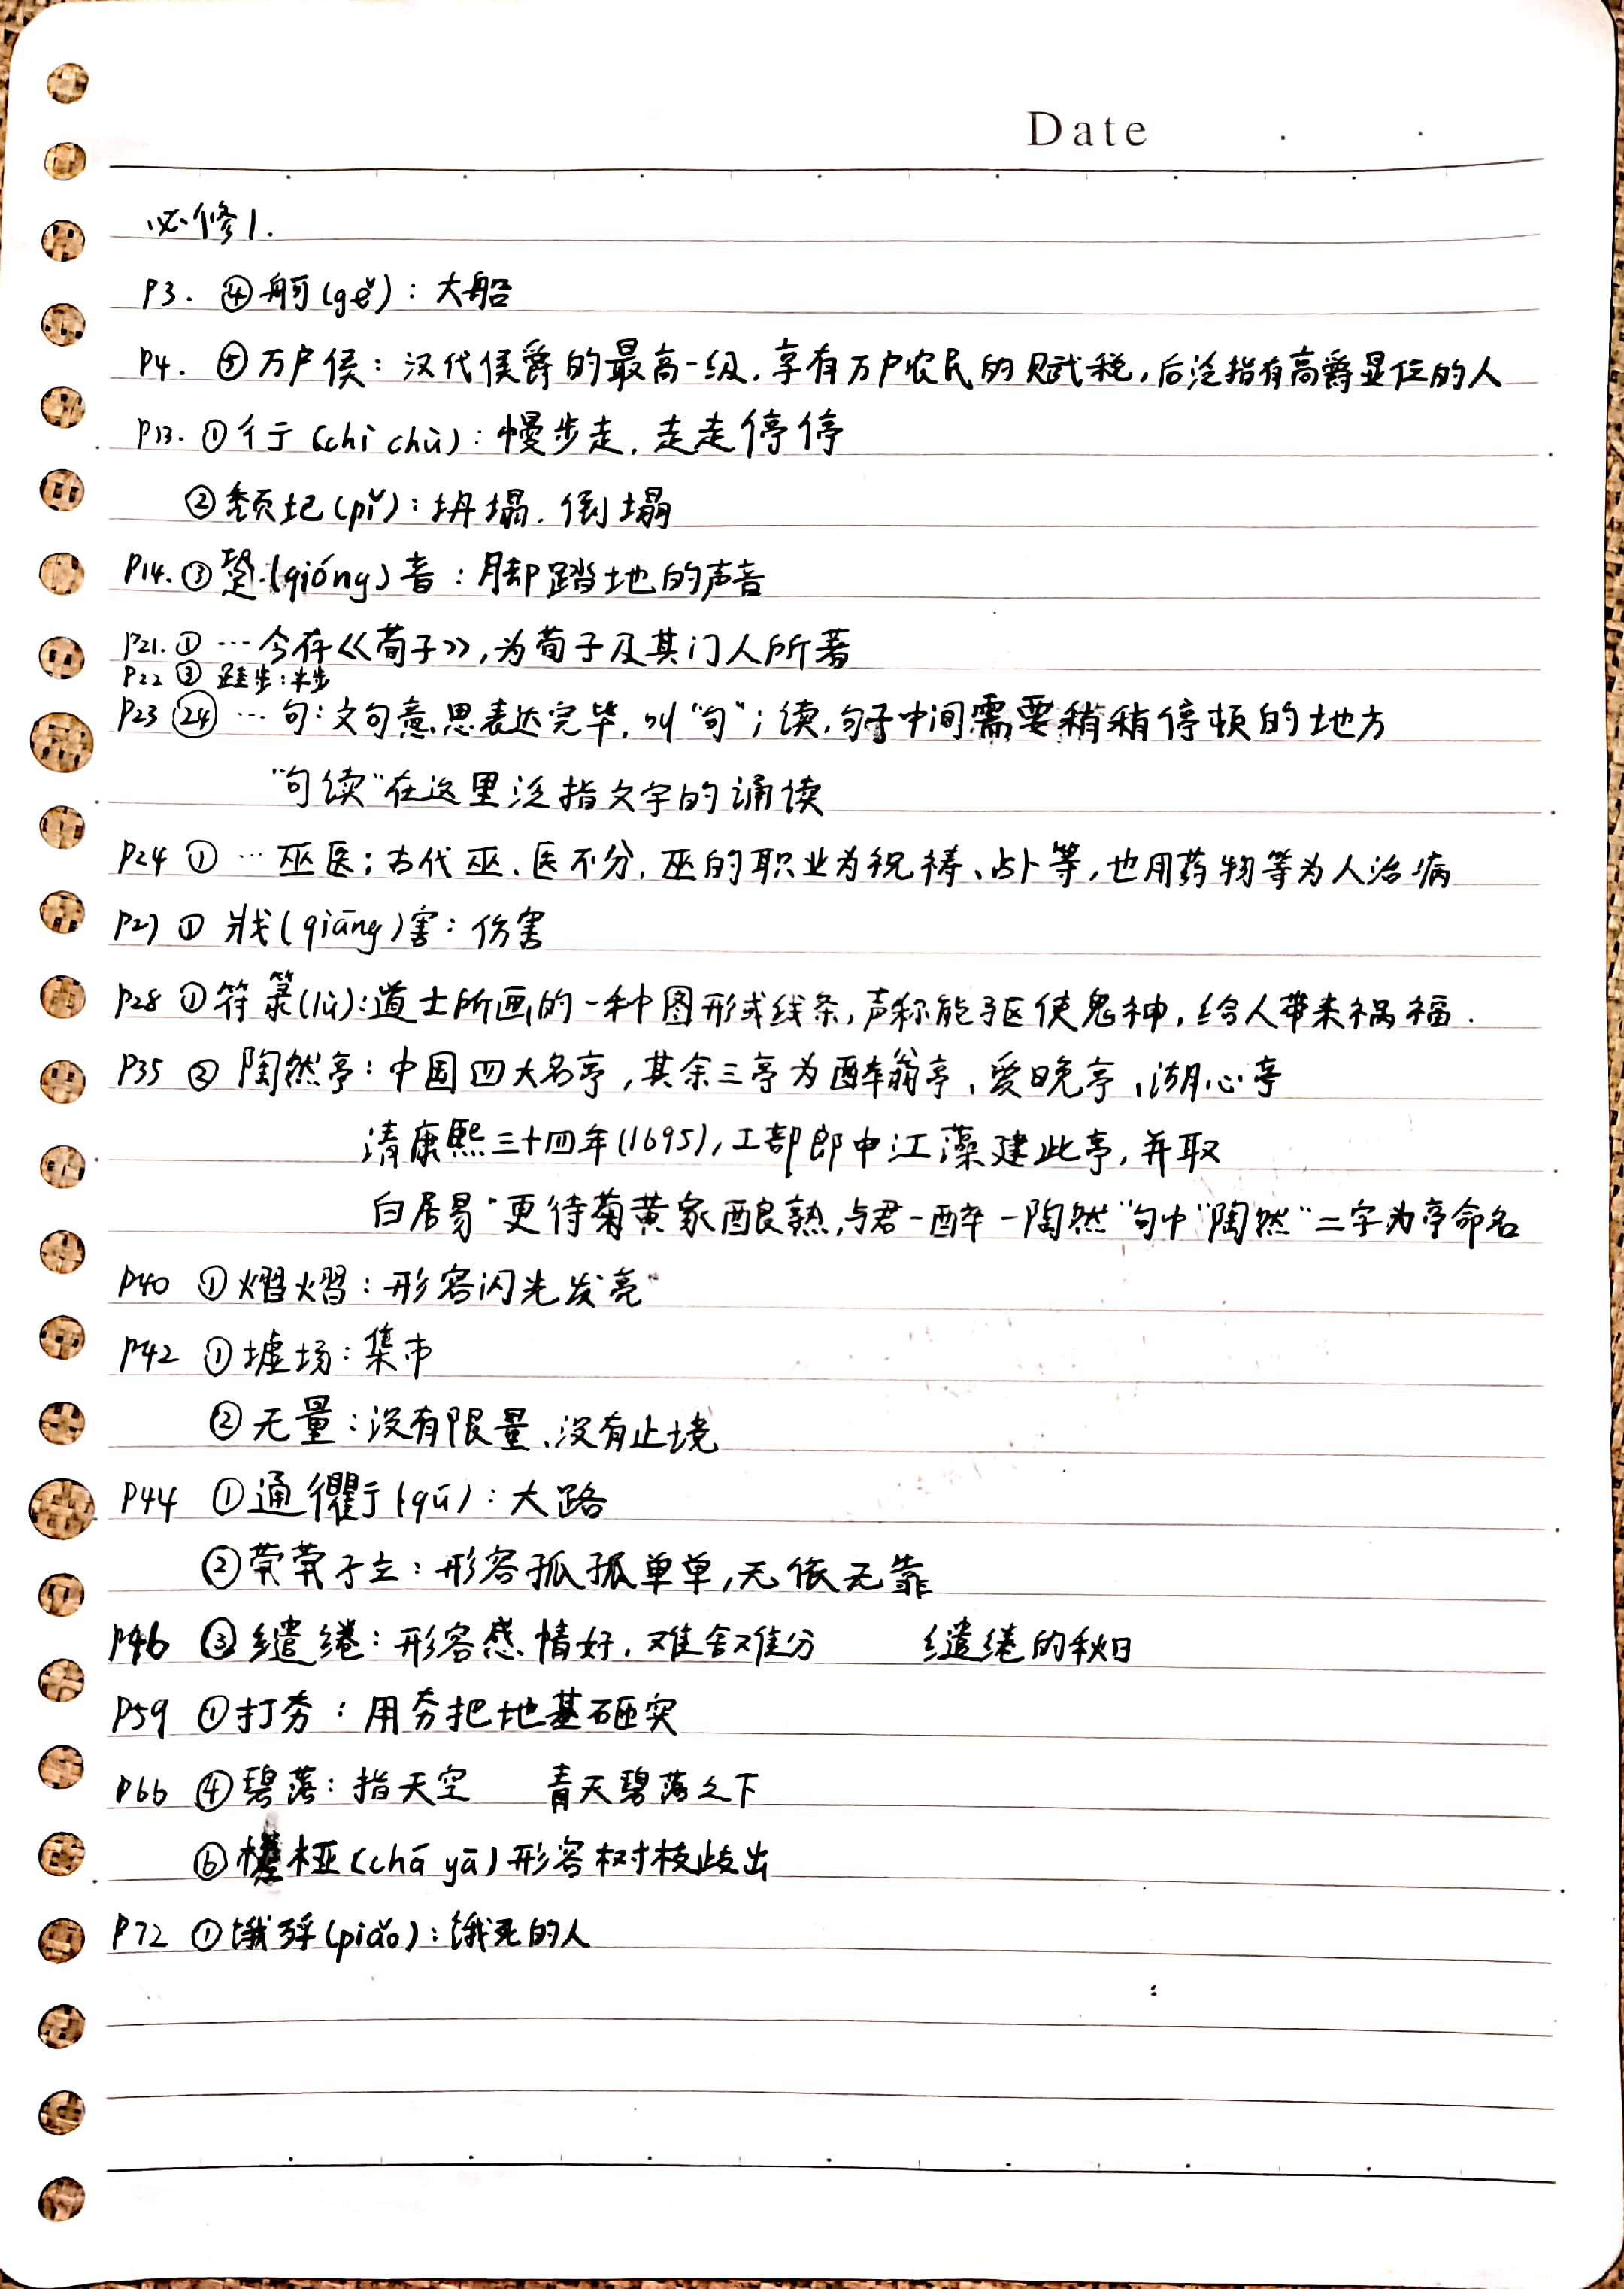 Date
必修1.
P3. ④舸(gě)：大船
P4. ⑤万户侯：汉代侯爵的最高一级，享有万户农民的赋税，后泛指有高爵显位的人
P13. ①彳亍(chì chù)：慢步走，走走停停
②颓圮(pǐ)：坍塌，倒塌
P14. ③跫(qióng)音：脚踏地的声音
P21. ① …今存《荀子》，为荀子及其门人所著
P22 ③ 跬步：半步
P23 ㉔ …句：文句意思表达完毕，叫"句"；读，句子中间需要稍稍停顿的地方
"句读"在这里泛指文字的诵读
P24 ① …巫医：古代巫、医不分，巫的职业为祝祷、占卜等，也用药物等为人治病
P27 ① 戕(qiāng)害：伤害
P28 ①符箓(lù)：道士所画的一种图形或线条，声称能驱使鬼神，给人带来祸福.
P35 ② 陶然亭：中国四大名亭，其余三亭为醉翁亭、爱晚亭、湖心亭
清康熙三十四年(1695)，工部郎中江藻建此亭，并取
白居易"更待菊黄家酿熟，与君一醉一陶然"句中"陶然"二字为亭命名
P40 ①熠熠：形容闪光发亮
P42 ①墟场：集市
②无量：没有限量、没有止境
P44 ①通衢(qú)：大路
②茕茕孑立：形容孤孤单单，无依无靠
P46 ③缱绻：形容感情好，难舍难分 缱绻的秋日
P59 ①打夯：用夯把地基砸实
P66 ④碧落：指天空 青天碧落之下
⑥楂桠(chā yā)形容树枝歧出
P72 ①饿殍(piǎo)：饿死的人